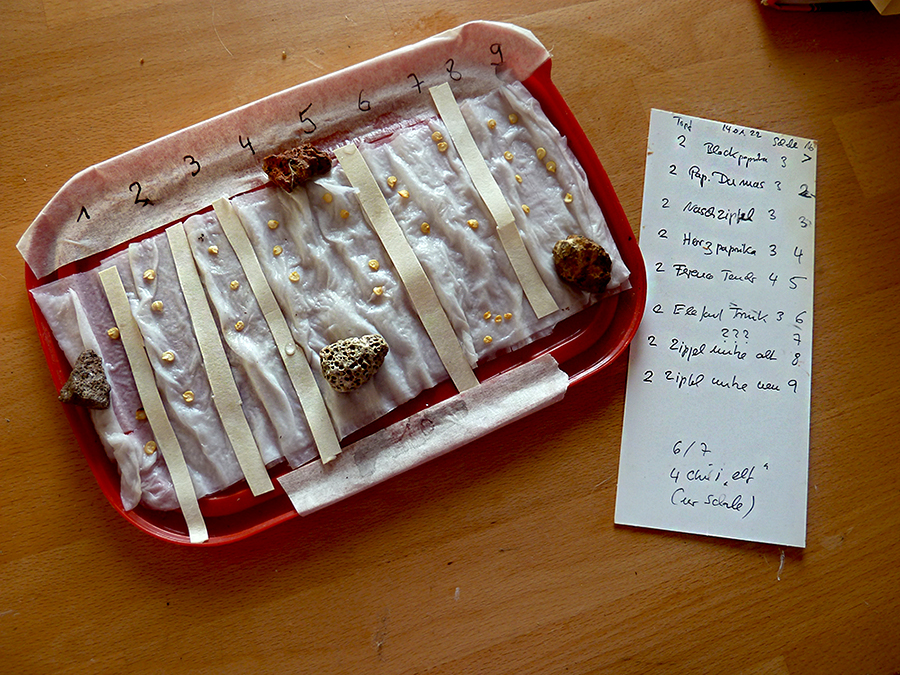 1 2 3 4 5 6 7 8 9
Topf 14.01.22 Schale
2 Blockpaprika 3
2 Pap. Dumas 3 2
2 Naschzipfel 3 3
2 Herzpaprika 3 4
2 4 5
2 3 6
??? 7
2 Zipfel alt 8
2 Zipfel neu 9
6/7
4 chili "elf"
(nur Schale)